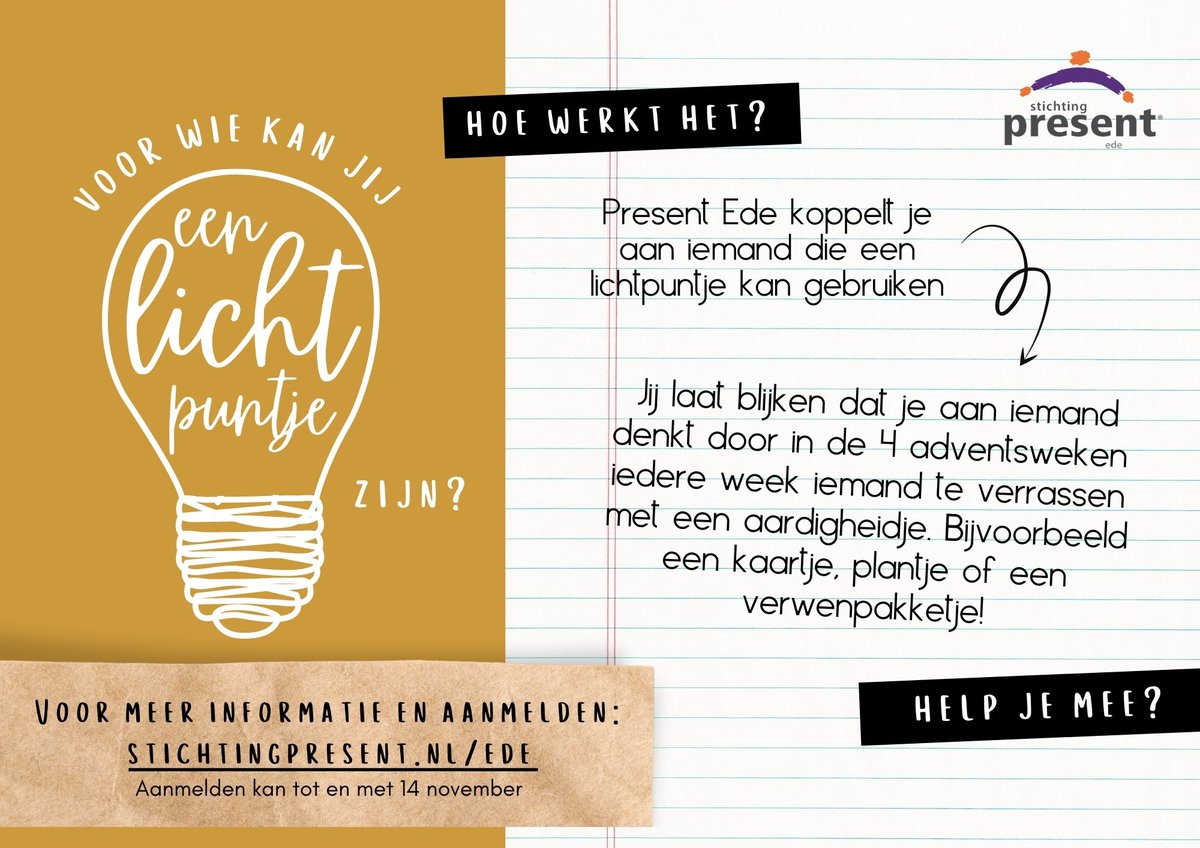 VOOR WIE KAN JIJ
een
licht
puntje
ZIJN?
HOE WERKT HET?
stichting
present®
ede
Present Ede koppelt je
aan iemand die een
lichtpuntje kan gebruiken
Jij laat blijken dat je aan iemand
denkt door in de 4 adventsweken
iedere week iemand te verrassen
met een aardigheidje. Bijvoorbeeld
een kaartje, plantje of een
verwenpakketje!
HELP JE MEE?
VOOR MEER INFORMATIE EN AANMELDEN:
STICHTINGPRESENT.NL/EDE
Aanmelden kan tot en met 14 november